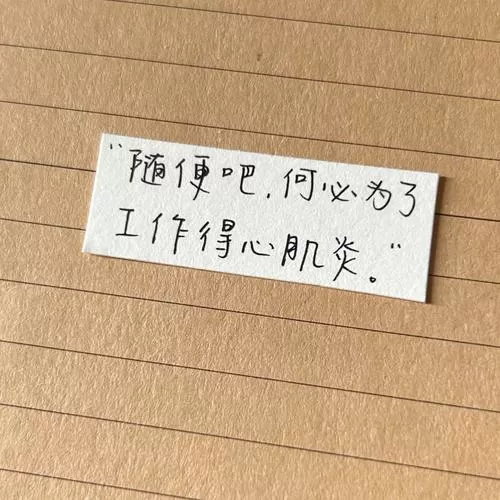 “随便吧，何必为了
工作得心肌炎。”